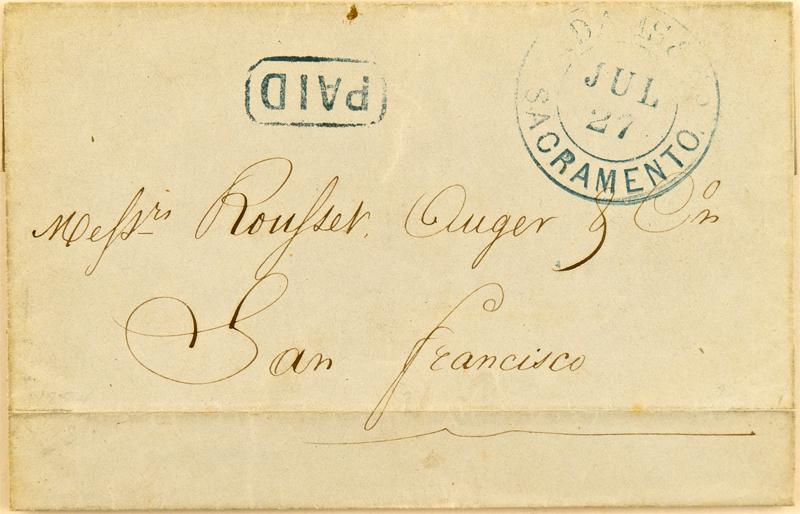 PAID
JUL
27
SACRAMENTO.
Messrs Rousset. Auger & Co
San Francisco